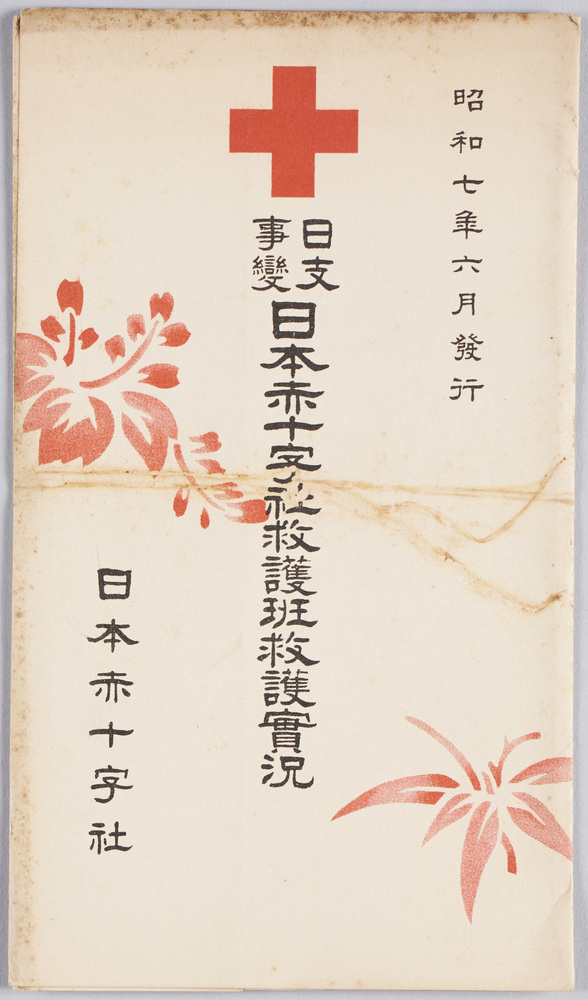 昭和七年六月發行
日支
事變
日本赤十字社救護班救護實況
日本赤十字社